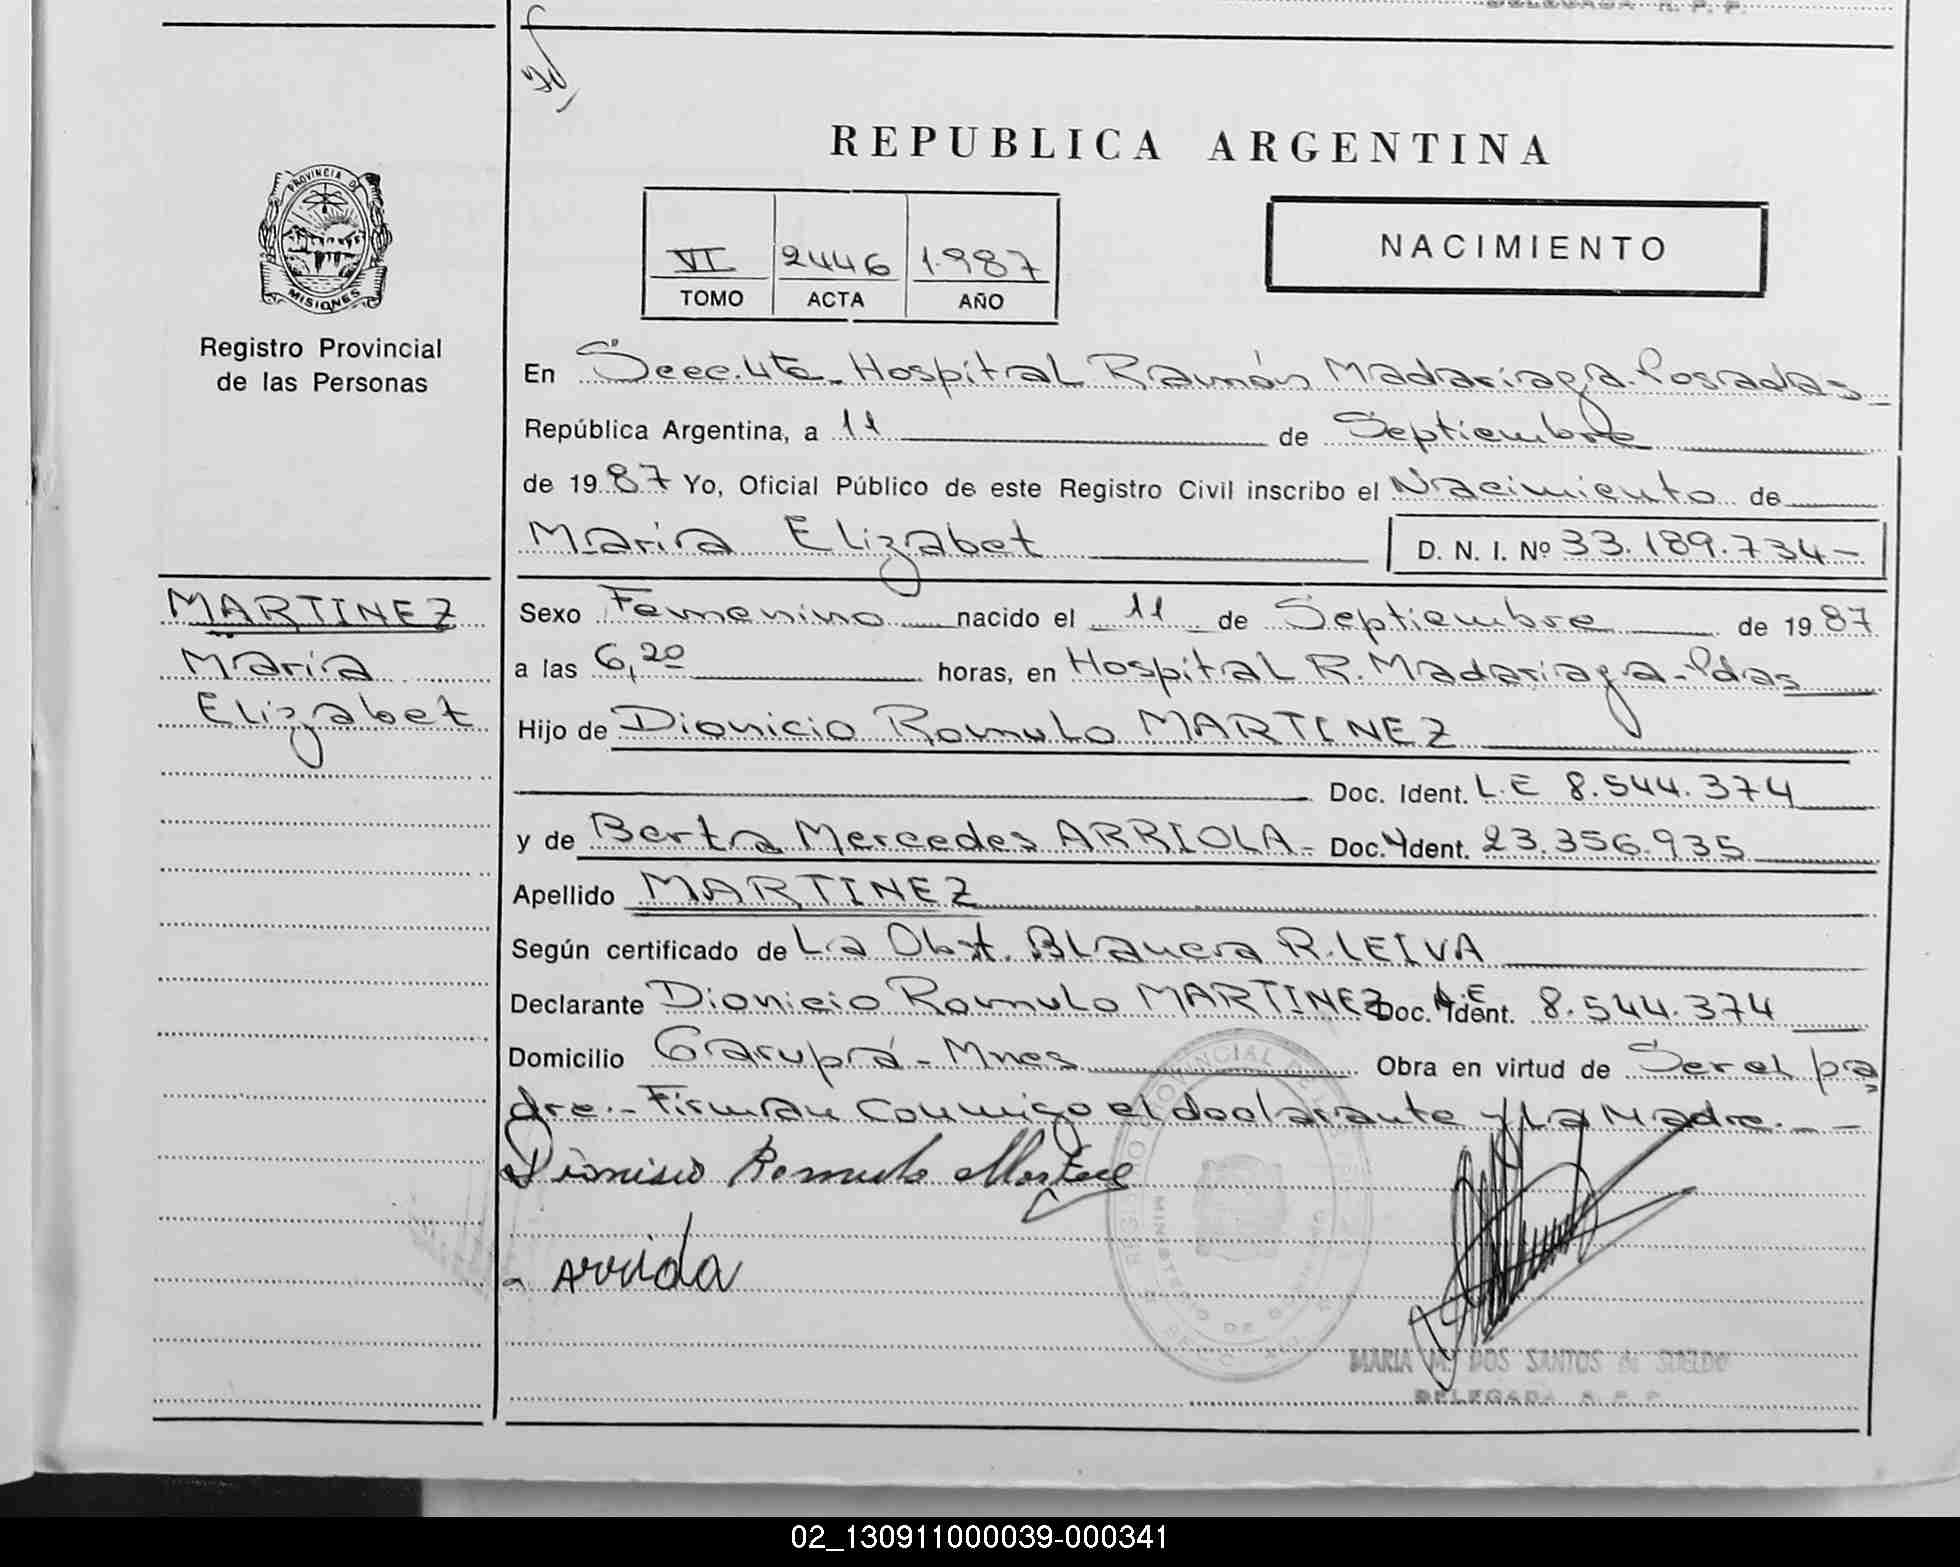 DELEGADA R. P. P.
REPUBLICA ARGENTINA
PROVINCIA DE
MISIONES
Registro Provincial
de las Personas
VI 2446 1.987
TOMO ACTA AÑO
NACIMIENTO
En Secc. 4ta. Hospital Ramón Madariaga. Posadas
República Argentina, a 11 de Septiembre
de 1987 Yo, Oficial Público de este Registro Civil inscribo el Nacimiento de
Maria Elizabet D. N. I. Nº 33.189.734-
MARTINEZ
Maria
Elizabet
Sexo Femenino nacido el 11 de Septiembre de 1987
a las 6,20 horas, en Hospital R. Madariaga-Pdas
Hijo de Dionicio Romulo MARTINEZ
Doc. Ident. L.E 8.544.374
y de Berta Mercedes ARRIOLA- Doc. Ident. 23.356.935
Apellido MARTINEZ
Según certificado de La Obst. Blanca R. LEIVA
Declarante Dionicio Romulo MARTINEZ Doc. Ident. L.E 8.544.374
Domicilio Garupá-Mnes Obra en virtud de Ser el pa
dre.- Firman conmigo el declarante y La Madre.--
Dionisio Romulo Martinez
Arriola
REGISTRO PROVINCIAL DE LAS
MARIA M. DOS SANTOS de SUELDO
DELEGADA R. P. P.
02_130911000039-000341